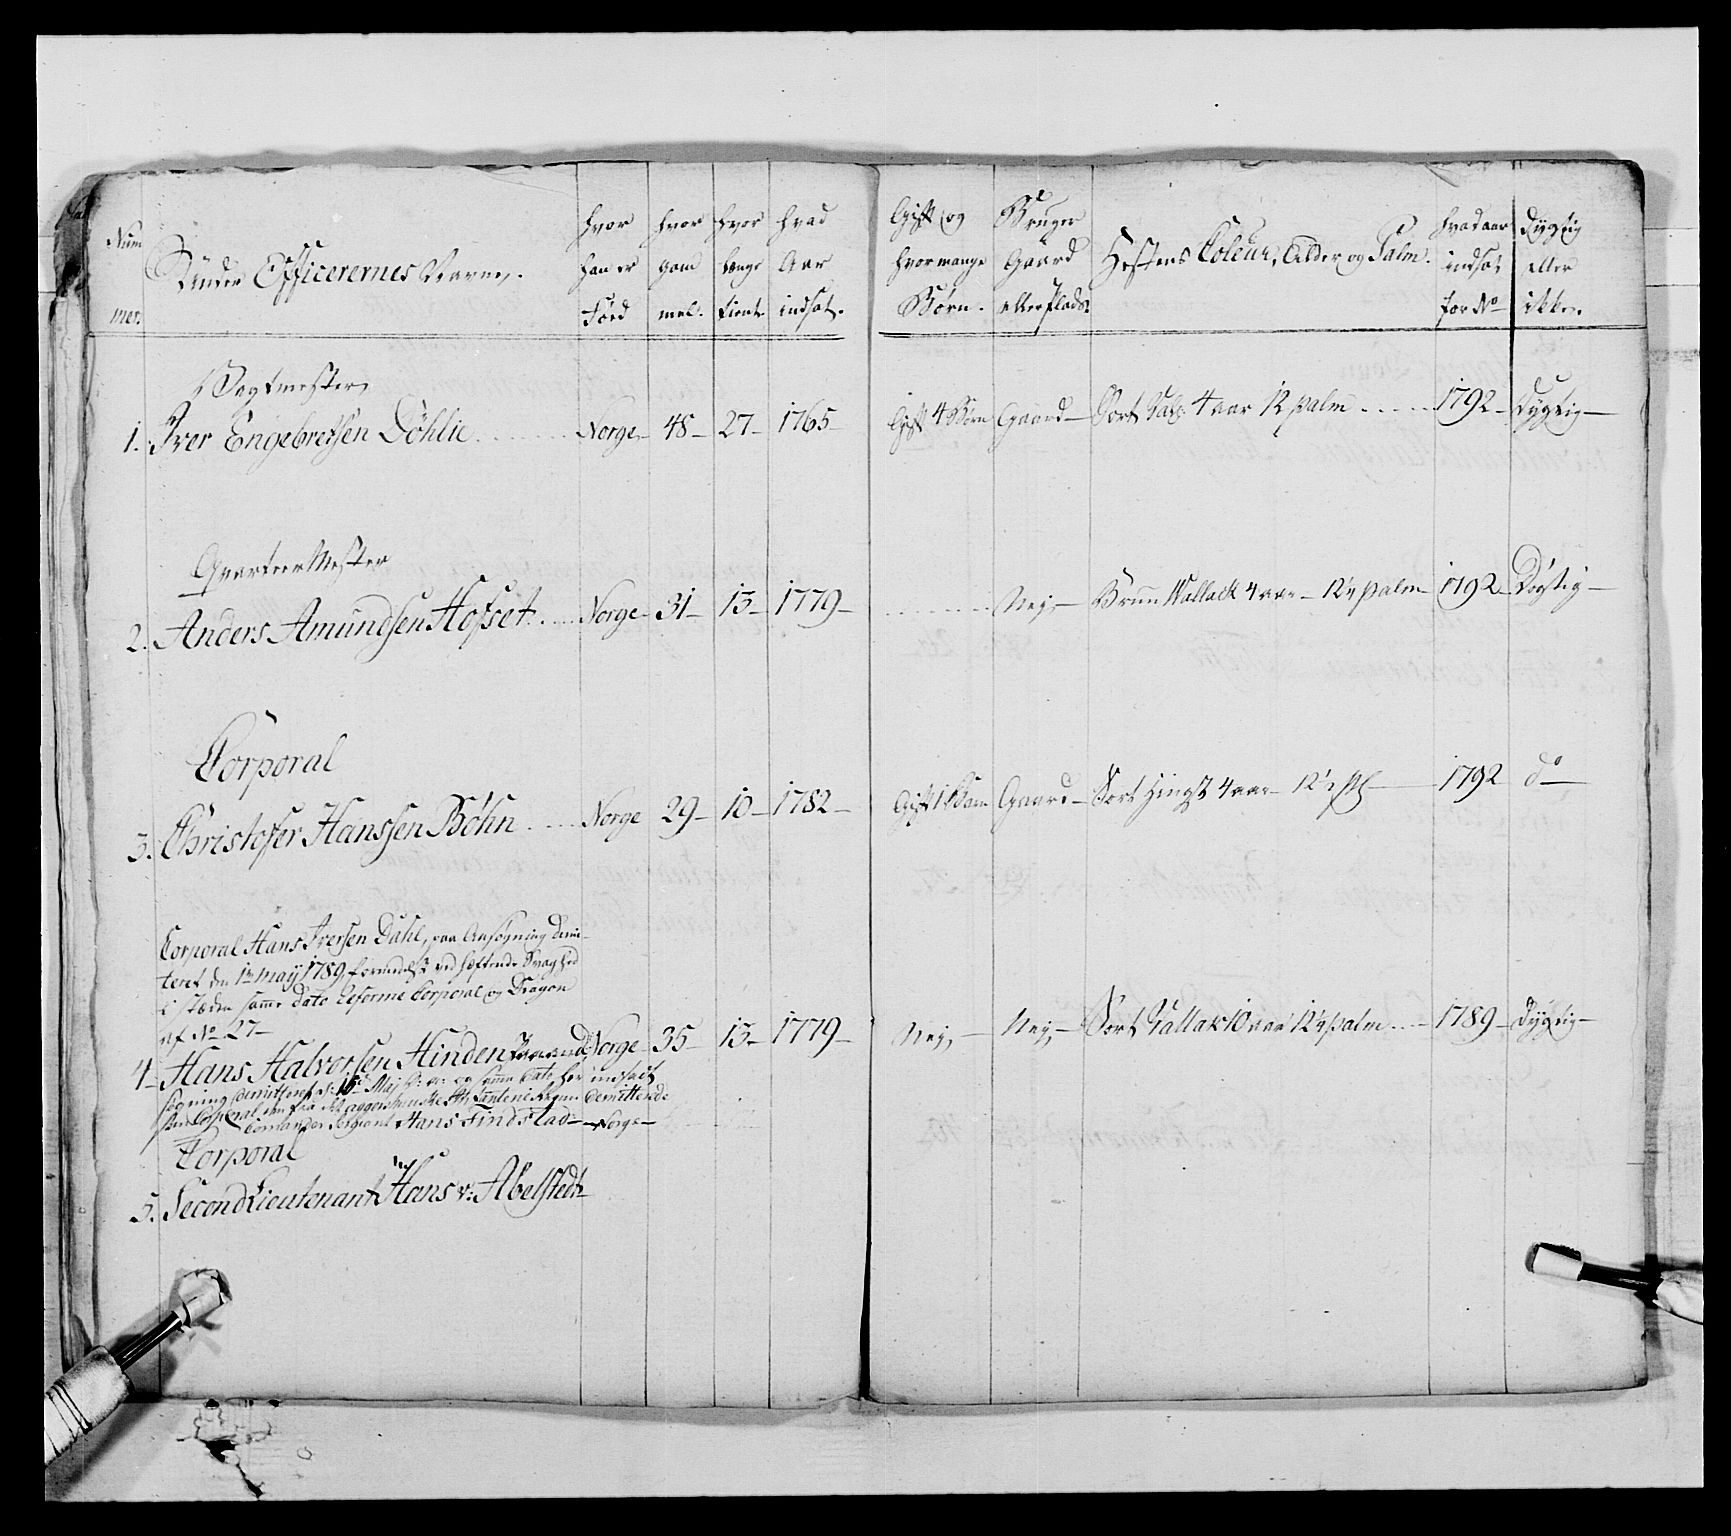 Num
mer.
Under Officerernes Navne.
hvor
han er
Född
hvor
gam
mel.
hvor
længe
tient
hvad
Aar
indsat.
Gift og
hvormange
Børn.
Bruger
Gaard
eller Plads.
Hestens Coleur, Alder og Palm.
hvad aar
indsat
for No
Dygtig
eller
ikke.
Vagtmester
1. Iver Engebretsen Döhlie Norge 48 27 1765 Gift 4 Børn Gaard Sort 4 aar 12 palm 1792 Dygtig
Qvarteer Mester
2. Anders Amundsen Hofset Norge 31 13 1779 Nej Brun Wallack 4 aar 12½ palm 1792 Dygtig
Corporal
3. Christofer Hanssen Böhn Norge 29 10 1782 Gift 1 Barn Gaard Sort Hingst 4 aar 12½ pl 1792 do
Corporal Hans Iversen Dahl, paa Ansøgning dimi-
teret den 1te may 1789, formedelst ved hæftende Svaghed
i stæden samme dato Reforme Corporal og Dragon
af No 27
4 Hans Halvorsen Hinden Norge 35 13 1779 Nej Nej Sort Vallak 10 aar 12½ palm 1789 Dygtig
søgning demitteret d: Maj og samme dato her indsadt
som Corporal fra det aggershuuske Infanterie Regim demitterede
Comander Sergeant Hans Findstad Norge
Corporal
5. Second Lieutenant Hans v: Abelstedt